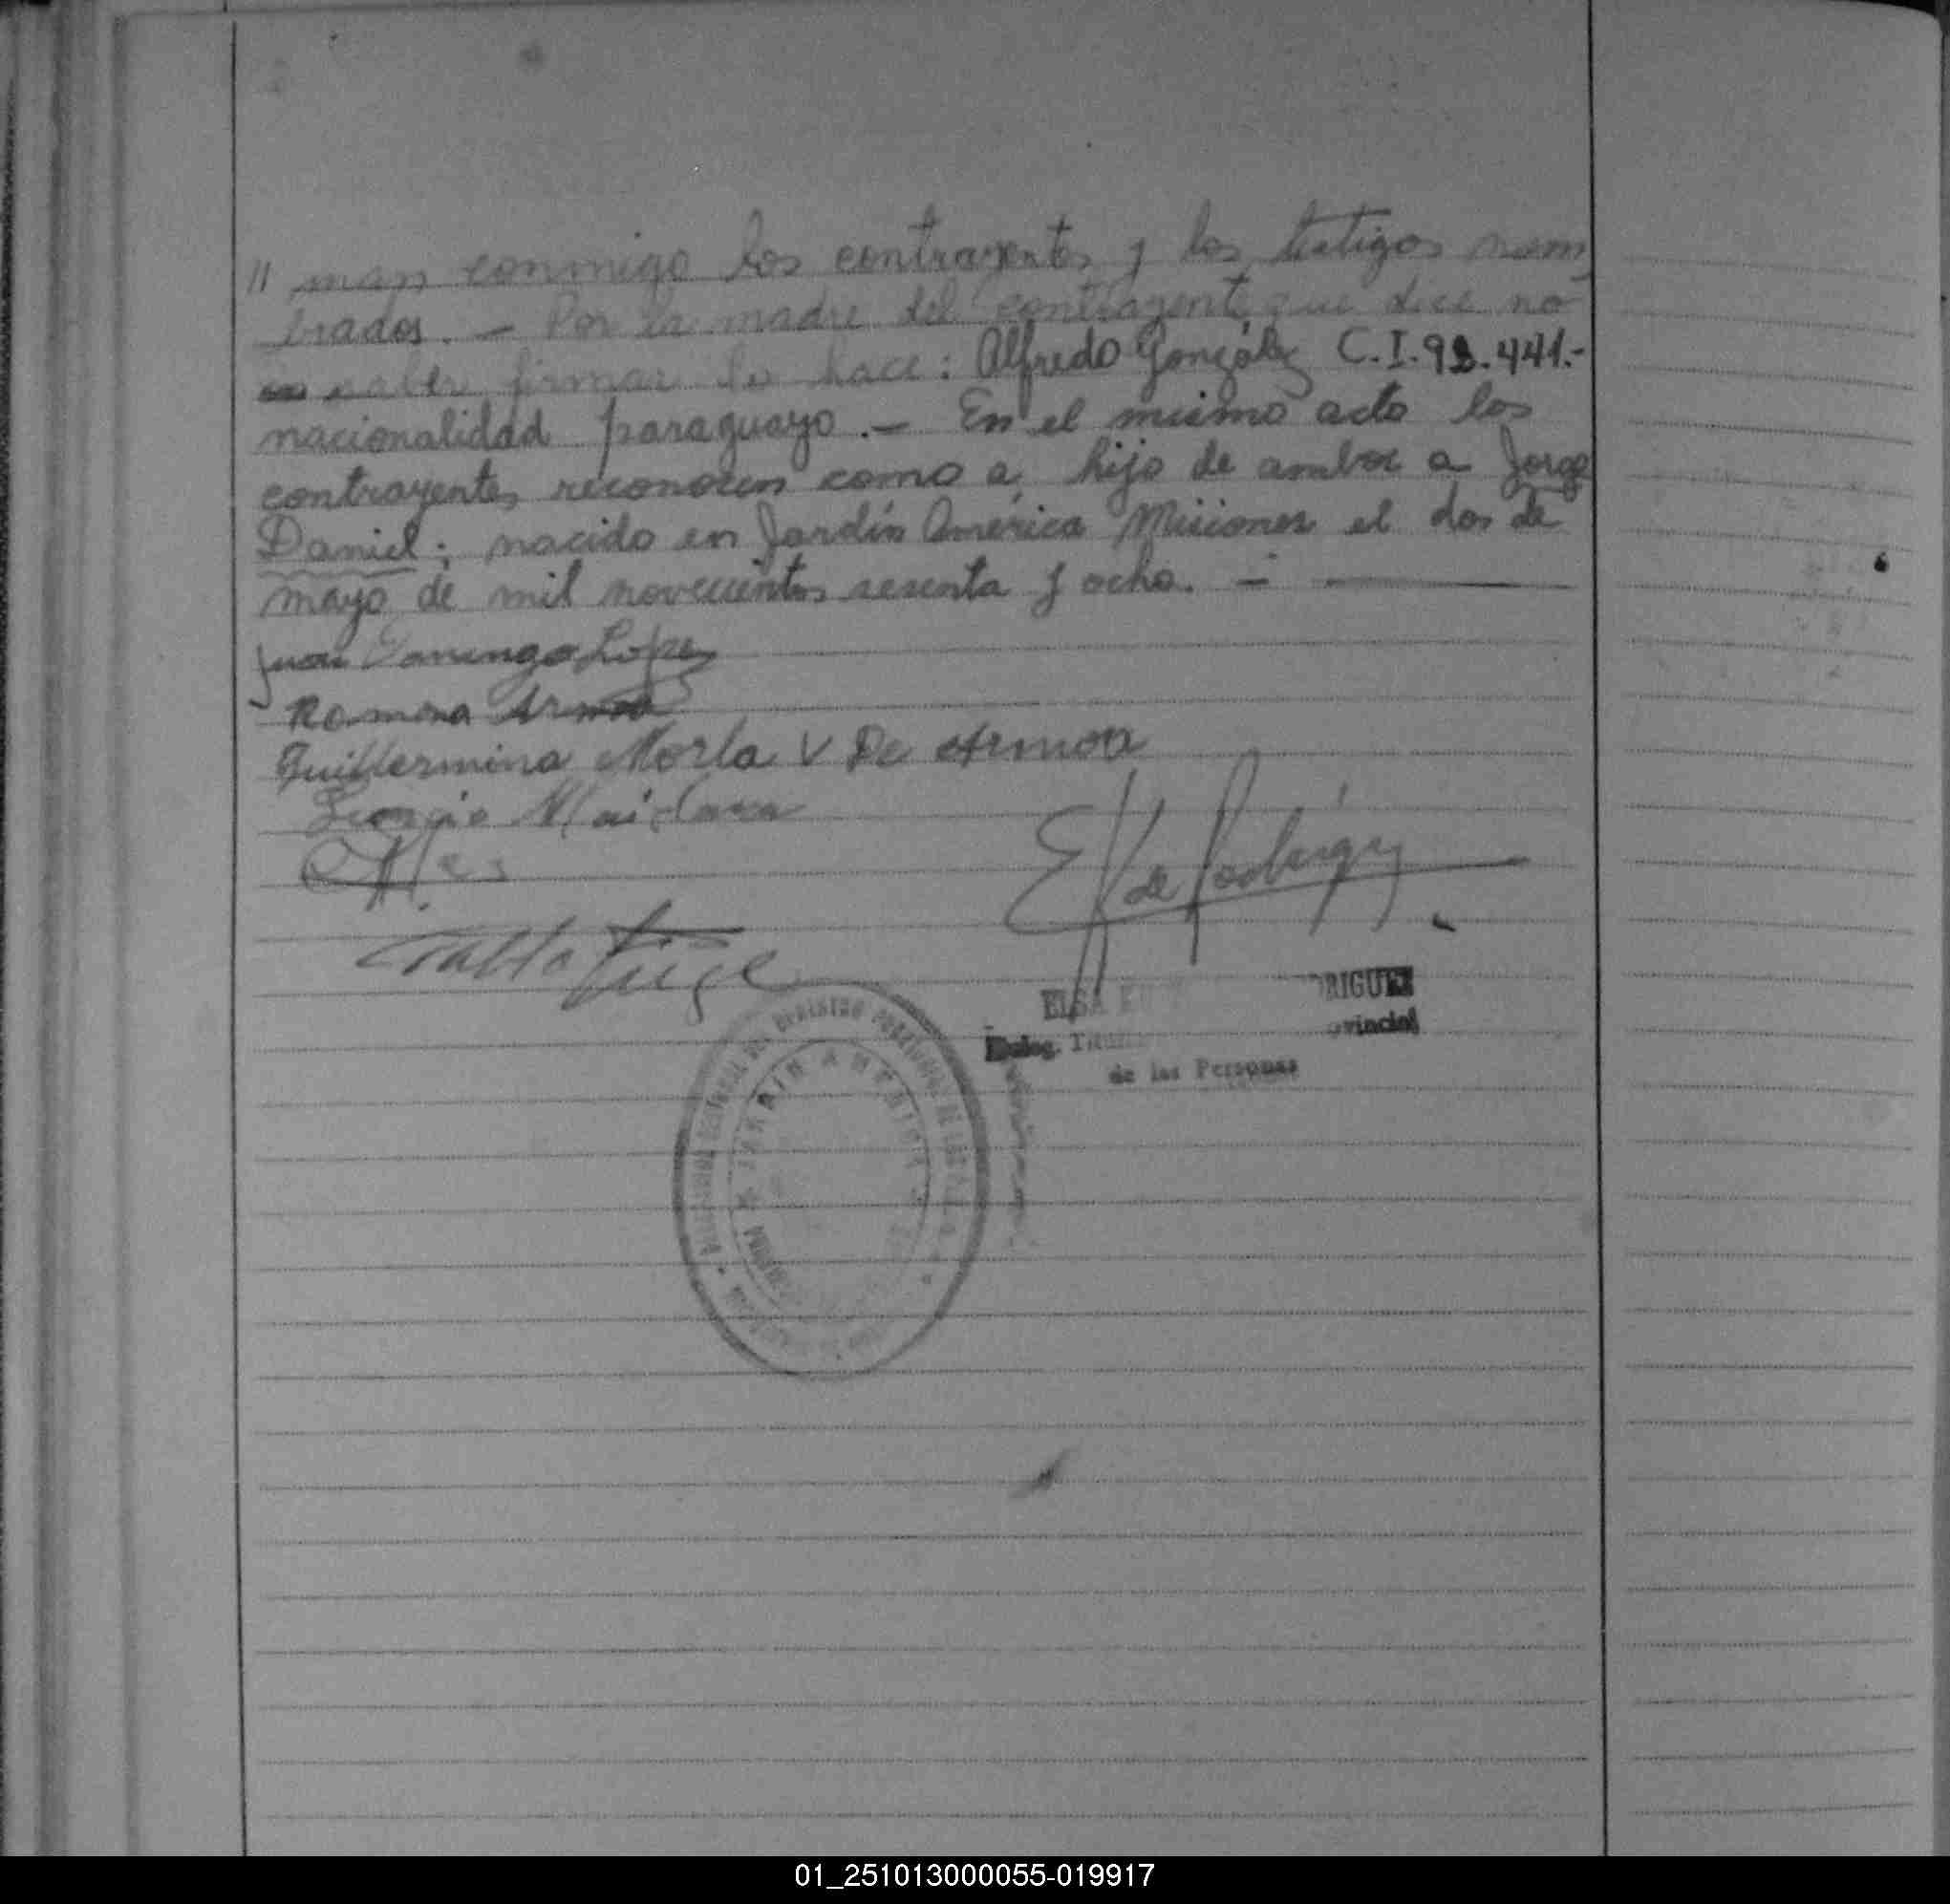 // man conmigo los contrayentes y los testigos nom
brados. - Por la madre del contrayente que dice no
saber firmar lo hace: Alfredo González C.I. 98.441.-
nacionalidad paraguayo.- En el mismo acto los
contrayentes reconocen como a hijo de ambos a Jorge
Daniel; nacido en Jardín América Misiones el dos de
mayo de mil novecientos sesenta y ocho. -
Juan Domingo Lopez
Ramona Armoa
Guillermina Morla V De Armoa
de Rodriguez
ELSA RIGUEZ
Deleg. ovincial
de las Personas
DEL REGISTRO PROVINCIAL DE LAS
JARDIN AMERICA
01_251013000055-019917